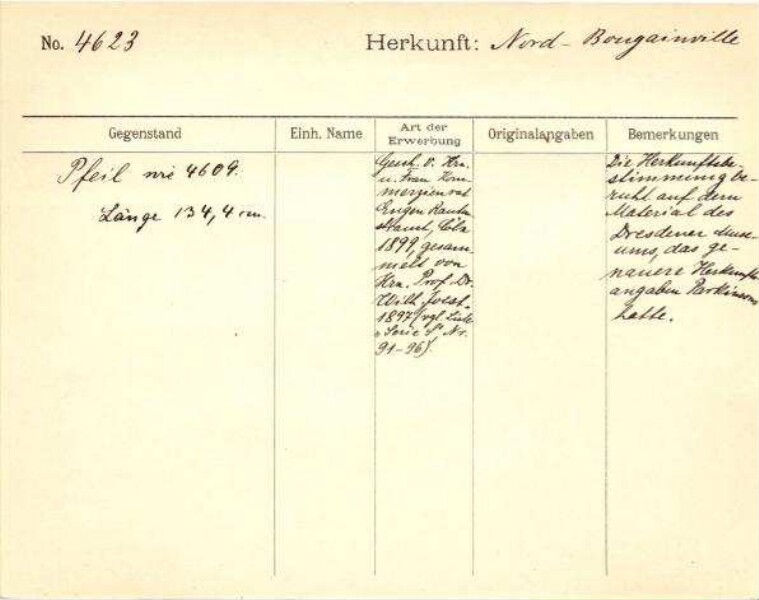 No. 4623
Herkunft: Nord-Bougainville
Gegenstand
Einh. Name
Art der
Erwerbung
Originalangaben
Bemerkungen
Pfeil wie 4609.
Länge 134,4 cm.
Gesch. v. Hrn.
u. Frau Kom-
merzienrat
Eugen Rauten-
strauch, Cöln
1899, gesam-
melt von
Hrn. Prof. Dr.
Wilh. Joest.
1897 (vgl. Liste
"Serie S" Nr.
91-96).
Die Herkunftsbe-
stimmung be-
ruht auf dem
Material des
Dresdener Muse-
ums, das ge-
nauere Herkunfts-
angaben Parkinsons
hatte.